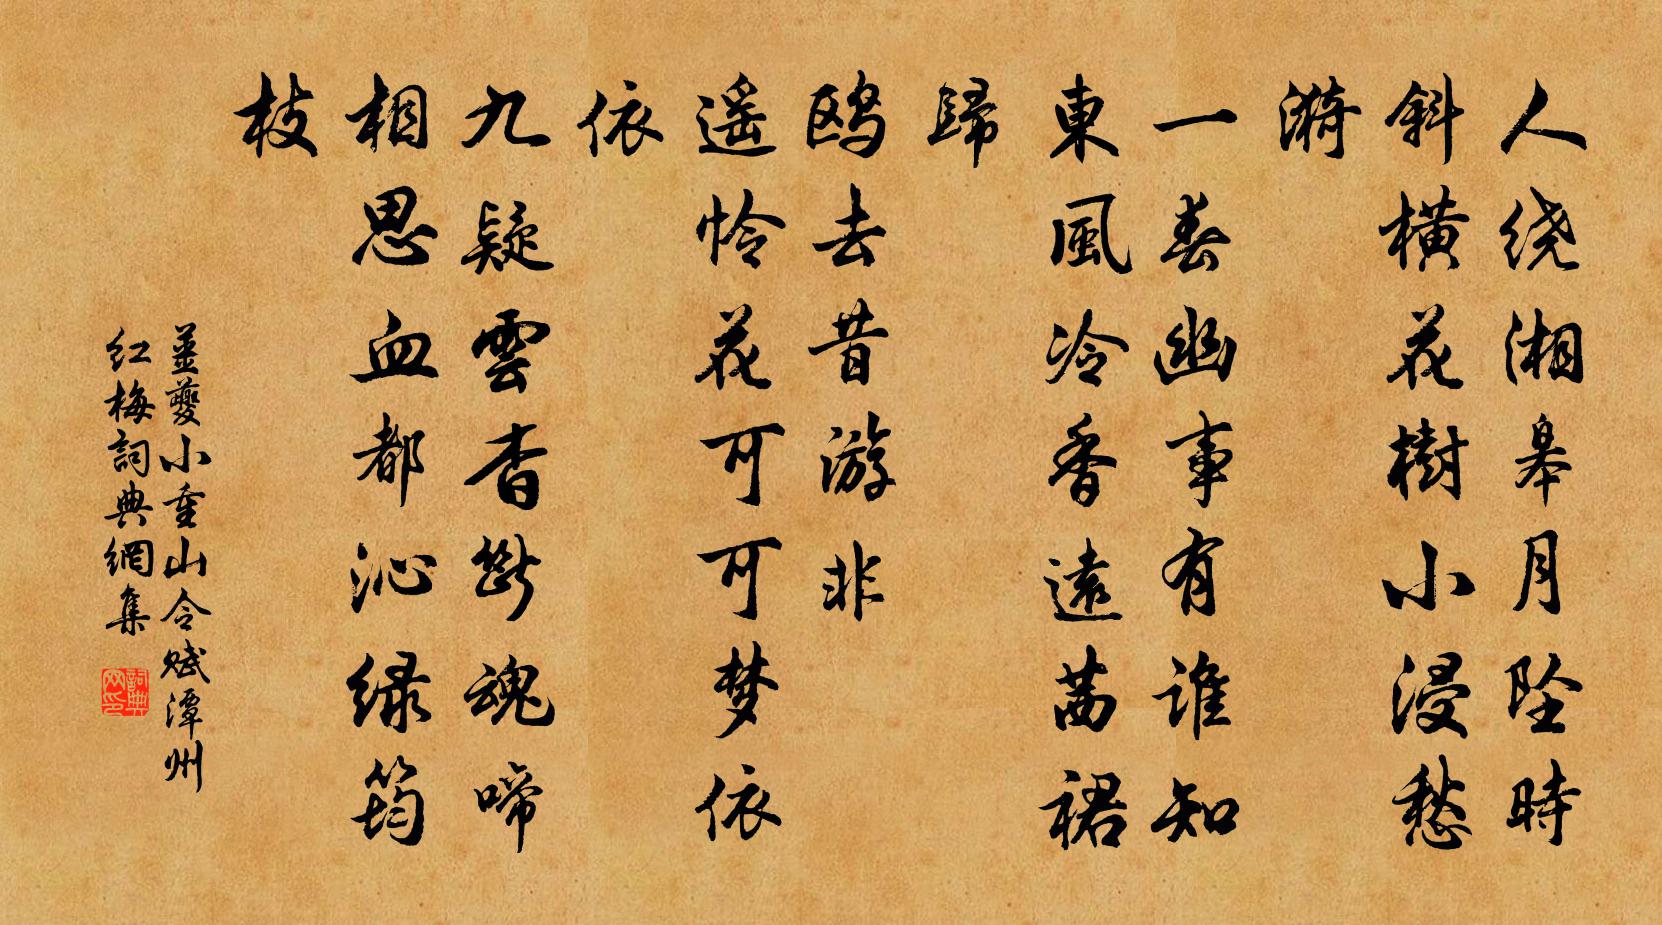 人绕湘皋月坠時
斜横花樹小浸愁
漪
一春幽事有谁知
東風冷香遠茜裙
歸
鸥去昔游非
遥怜花可可梦依
依
九疑雲杳斷魂啼
相思血都沁绿筠
枝
薑夔小重山令赋潭州
红梅詞典網集
詞典网印